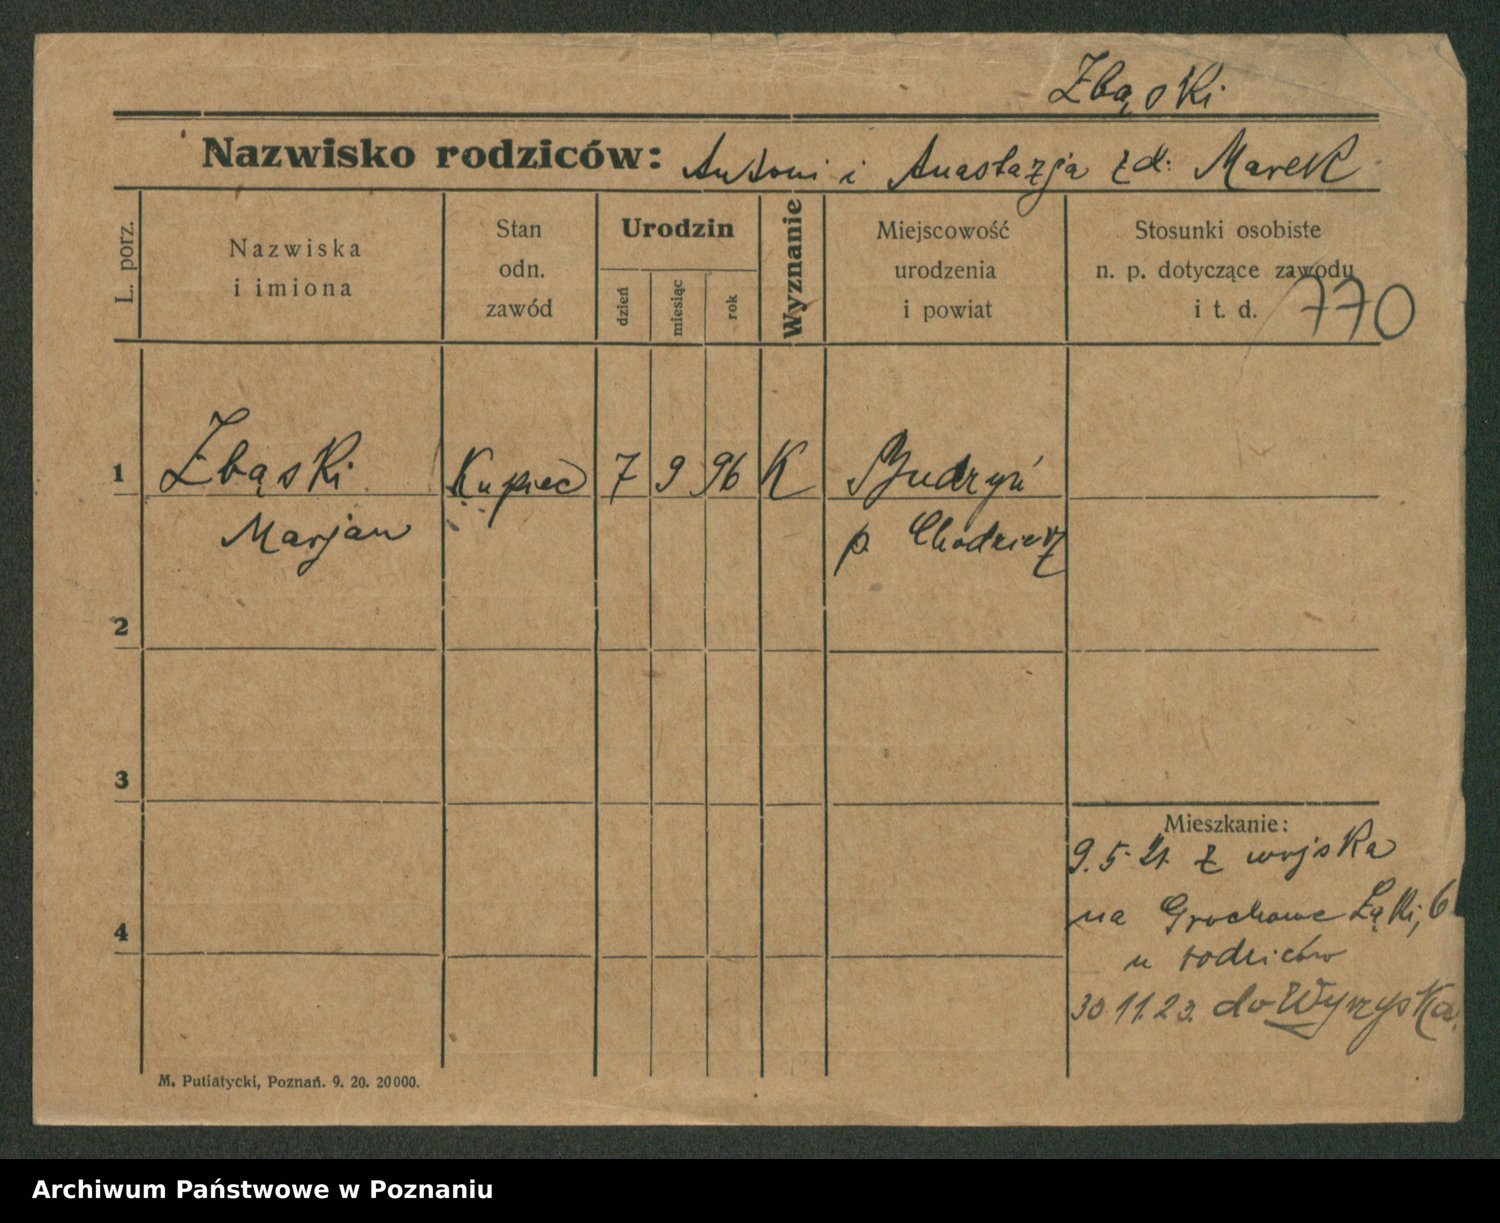 Zbąski
Nazwisko rodziców: Antoni i Anastazja z d: Marek
L. porz.
Nazwiska
i imiona
Stan
odn.
zawód
Urodzin
dzień
miesiąc
rok
Wyznanie
Miejscowość
urodzenia
i powiat
Stosunki osobiste
n. p. dotyczące zawodu
i t. d.
770
1 Zbąski Kupiec 7 9 96 K Budzyń
Marjan p. Chodzież
2
3
4
Mieszkanie:
9.5.21. z wojska
na Grochowe Łąki, 6
u rodziców
30 11.23. do Wyrzyska.
M. Putiatycki, Poznań. 9. 20. 20000.
Archiwum Państwowe w Poznaniu